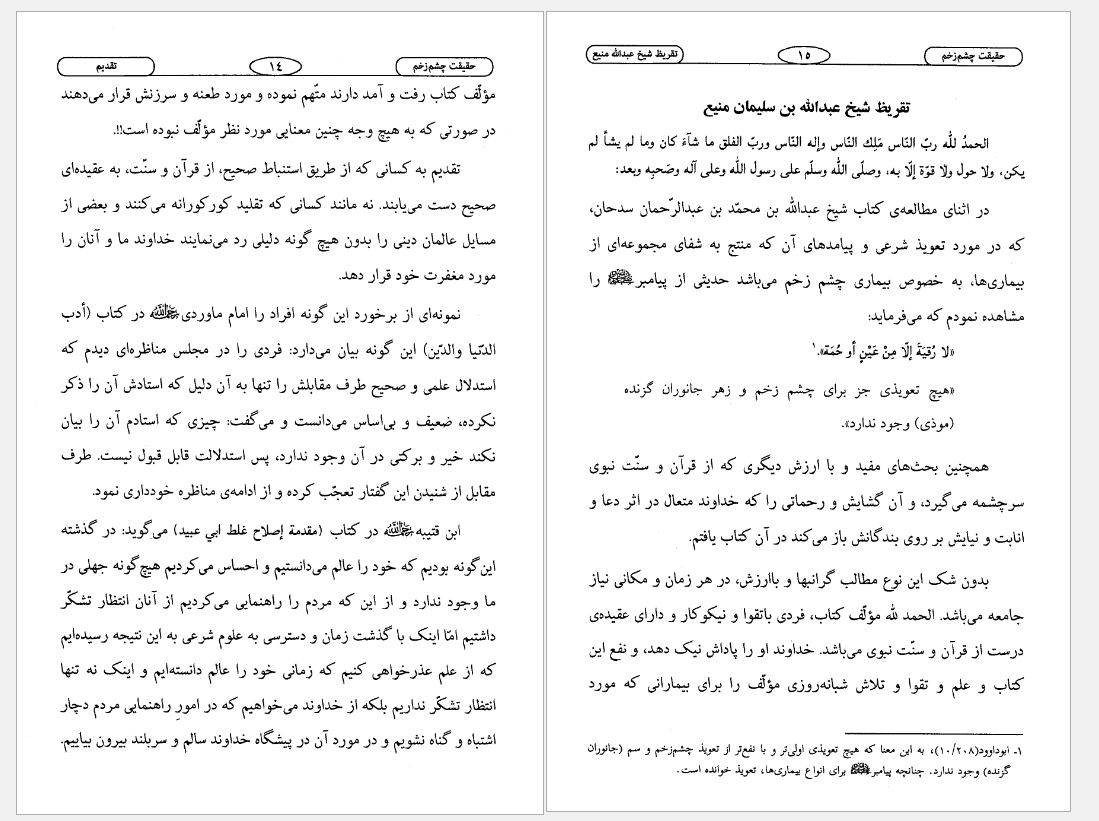 حقیقت چشم‌زخم
١٤
تقدیم
مؤلّف کتاب رفت و آمد دارند متّهم نموده و مورد طعنه و سرزنش قرار می‌دهند
در صورتی که به هیچ وجه چنین معنایی مورد نظر مؤلّف نبوده است!!.
تقدیم به کسانی که از طریق استنباط صحیح، از قرآن و سنّت، به عقیده‌ای
صحیح دست می‌یابند. نه مانند کسانی که تقلید کورکورانه می‌کنند و بعضی از
مسایل عالمان دینی را بدون هیچ گونه دلیلی رد می‌نمایند خداوند ما و آنان را
مورد مغفرت خود قرار دهد.
نمونه‌ای از برخورد این گونه افراد را امام ماوردی رحمه الله در کتاب (أدب
الدّنیا والدّین) این گونه بیان می‌دارد: فردی را در مجلس مناظره‌ای دیدم که
استدلال علمی و صحیح طرف مقابلش را تنها به آن دلیل که استادش آن را ذکر
نکرده، ضعیف و بی‌اساس می‌دانست و می‌گفت: چیزی که استادم آن را بیان
نکند خیر و برکتی در آن وجود ندارد، پس استدلالت قابل قبول نیست. طرف
مقابل از شنیدن این گفتار تعجّب کرده و از ادامه‌ی مناظره خودداری نمود.
ابن قتیبه رحمه الله در کتاب (مقدمة إصلاح غلط ابي عبید) می‌گوید: در گذشته
این‌گونه بودیم که خود را عالم می‌دانستیم و احساس می‌کردیم هیچ‌گونه جهلی در
ما وجود ندارد و از این که مردم را راهنمایی می‌کردیم از آنان انتظار تشکّر
داشتیم امّا اینک با گذشت زمان و دسترسی به علوم شرعی به این نتیجه رسیده‌ایم
که از علم عذرخواهی کنیم که زمانی خود را عالم دانسته‌ایم و اینک نه تنها
انتظار تشکّر نداریم بلکه از خداوند می‌خواهیم که در امورِ راهنمایی مردم دچار
اشتباه و گناه نشویم و در مورد آن در پیشگاه خداوند سالم و سربلند بیرون بیاییم.
حقیقت چشم‌زخم
١٥
تقریظ شیخ عبدالله منیع
تقریظ شیخ عبدالله بن سلیمان منیع
الحمدُ للّه ربّ النّاس مَلِك النّاس وإله النّاس وربّ الفلق ما شآءَ كان وما لم يشأ لم
يكن، ولا حول ولا قوّة إلّا به، وصلّى اللّه وسلّم على رسول اللّه وعلى آله وصَحبِه وبعد:
در اثنای مطالعه‌ی کتاب شیخ عبدالله بن محمّد بن عبدالرّحمان سدحان،
که در مورد تعویذ شرعی و پیامدهای آن که منتج به شفای مجموعه‌ای از
بیماری‌ها، به خصوص بیماری چشم زخم می‌باشد حدیثی از پیامبر ﷺ را
مشاهده نمودم که می‌فرماید:
«لا رُقيَةَ إلّا مِنْ عَيْنٍ أو حُمَة».١
«هیچ تعویذی جز برای چشم زخم و زهر جانوران گزنده
(موذی) وجود ندارد».
همچنین بحث‌های مفید و با ارزش دیگری که از قرآن و سنّت نبوی
سرچشمه می‌گیرد، و آن گشایش و رحماتی را که خداوند متعال در اثر دعا و
انابت و نیایش بر روی بندگانش باز می‌کند در آن کتاب یافتم.
بدون شک این نوع مطالب گرانبها و باارزش، در هر زمان و مکانی نیاز
جامعه می‌باشد. الحمد لله مؤلّف کتاب، فردی باتقوا و نیکوکار و دارای عقیده‌ی
درست از قرآن و سنّت نبوی می‌باشد. خداوند او را پاداش نیک دهد، و نفع این
کتاب و علم و تقوا و تلاش شبانه‌روزی مؤلّف را برای بیمارانی که مورد
١- ابوداوود(١٠/٢٠٨)، به این معنا که هیچ تعویذی اولی‌تر و با نفع‌تر از تعویذ چشم‌زخم و سم (جانوران
گزنده) وجود ندارد. چنانچه پیامبر ﷺ برای انواع بیماری‌ها، تعویذ خوانده است.